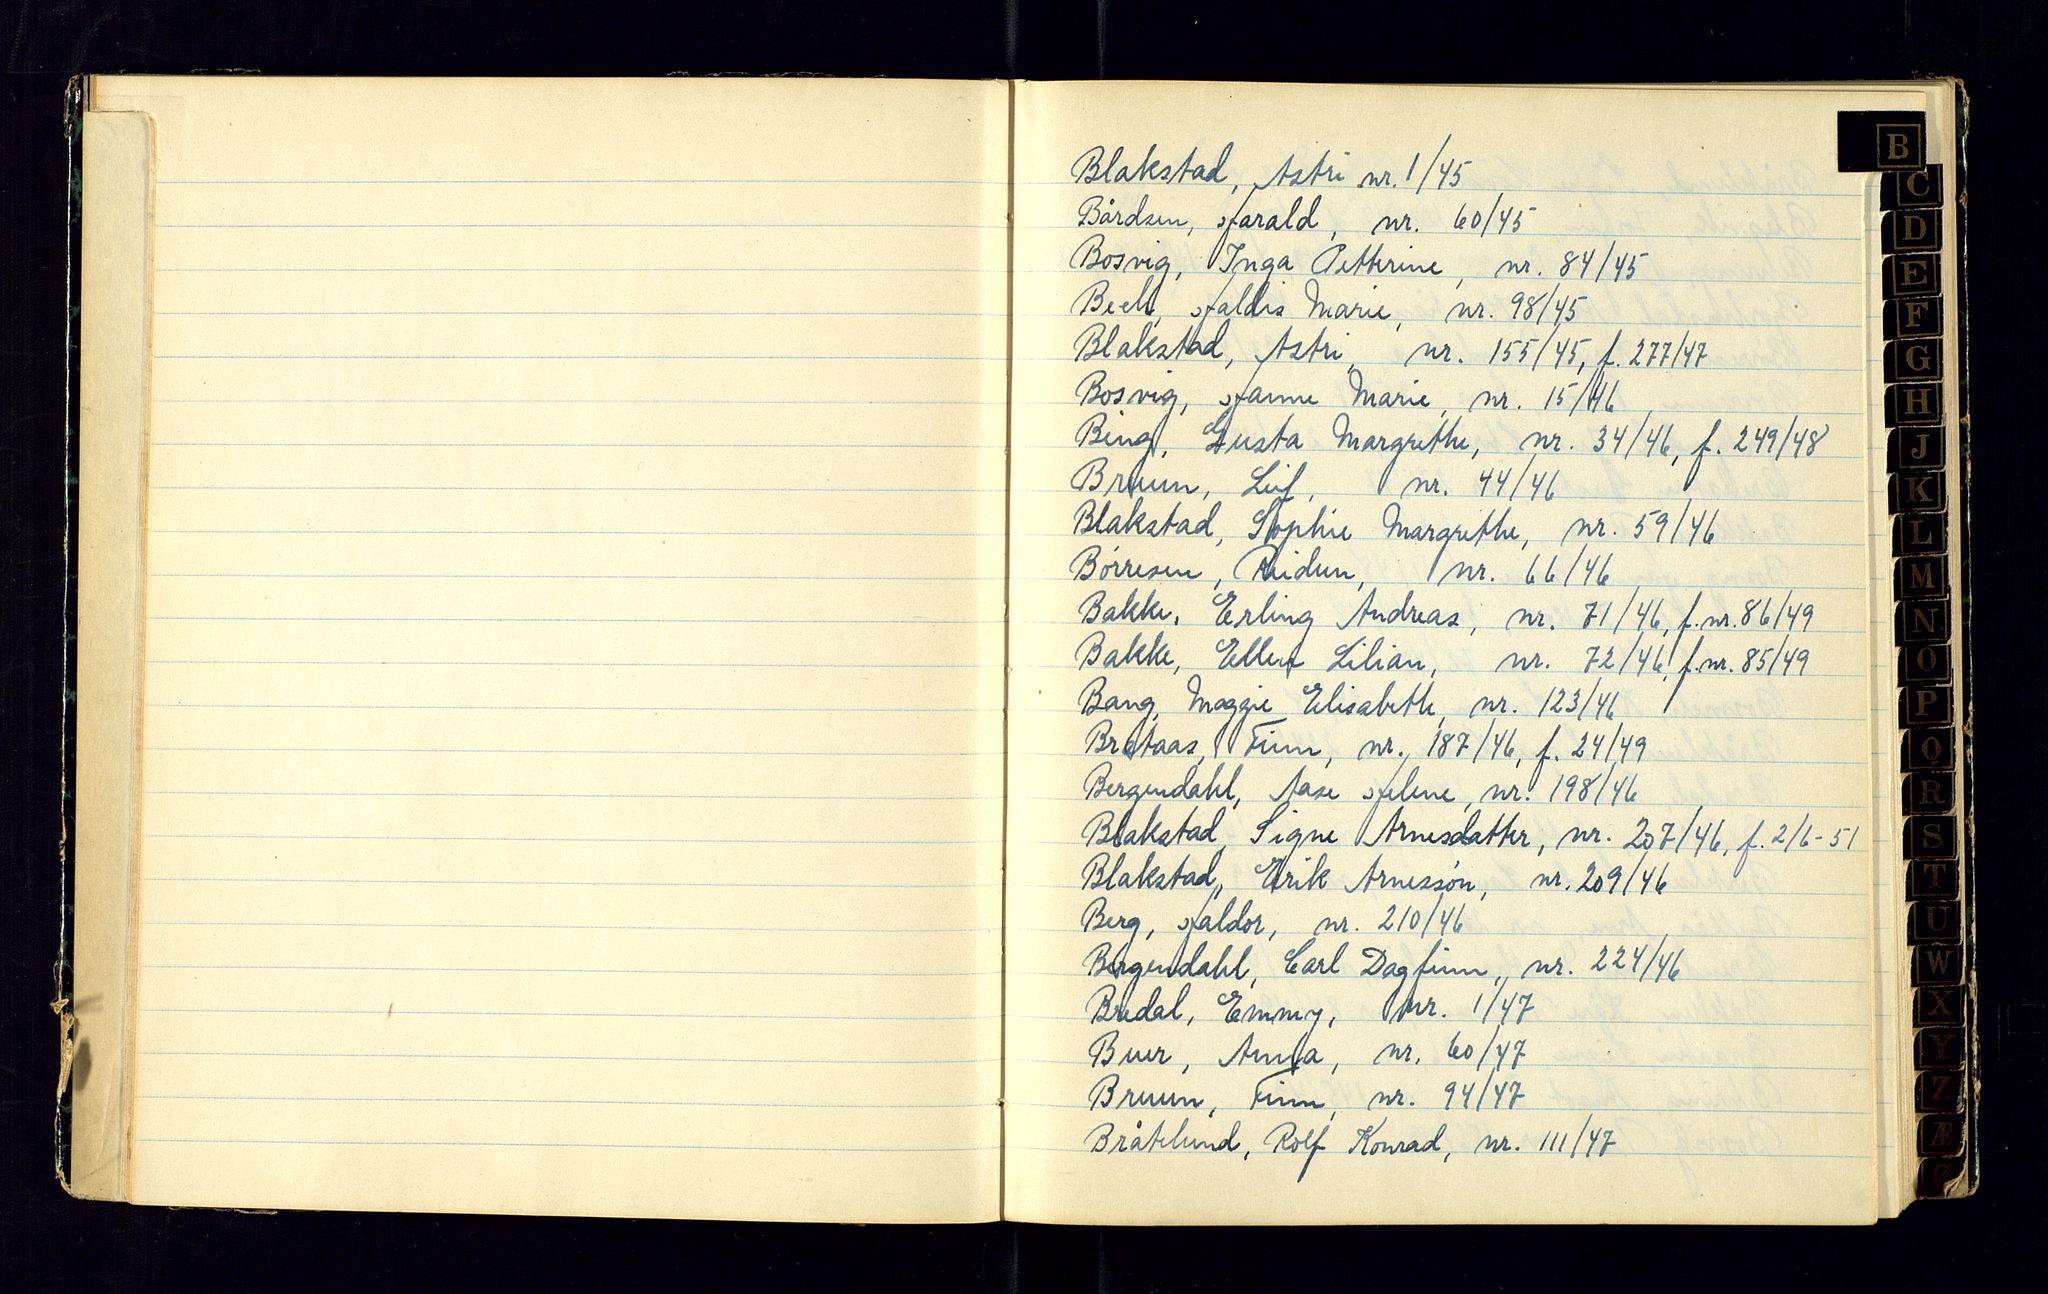 Blakstad, Astri nr. 1/45
Bårdsen, Harald, nr. 60/45
Bosvig, Inga Petterine, nr. 84/45
Beck, Haldis Marie, nr. 98/45
Blakstad, Astri, nr. 155/45, f. 277/47
Bosvig, Hanne Marie, nr. 15/46
Bing, Gusta Margrethe, nr. 34/46, f. 249/48
Bruun, Leif, nr. 44/46
Blakstad, Sophie Margrethe, nr. 59/46
Börresen, Reidun, nr. 66/46
Bakke, Erling Andreas, nr. 71/46, f. nr. 86/49
Bakke, Ellen Lilian, nr. 72/46, f. nr. 85/49
Bang, Maggie Elisabeth, nr. 123/46
Bråtaas, Finn, nr. 187/46, f. 24/49
Bergendahl, Aase Helene, nr. 198/46
Blakstad, Signe Arnesdatter, nr. 207/46, f. 2/6-51
Blakstad, Erik Arnessön, nr. 209/46
Berg, Haldor, nr. 210/46
Bergendahl, Carl Dagfinn, nr. 224/46
Bredal, Emmy, nr. 1/47
Buer, Anna, nr. 60/47
Bruun, Finn, nr. 94/47
Bråtelund, Rolf Konrad, nr. 111/47
B
C
D
E
F
G
H
J
K
L
M
N
O
P
Q
R
S
T
U
W
X
Y
Z
Æ
Ø